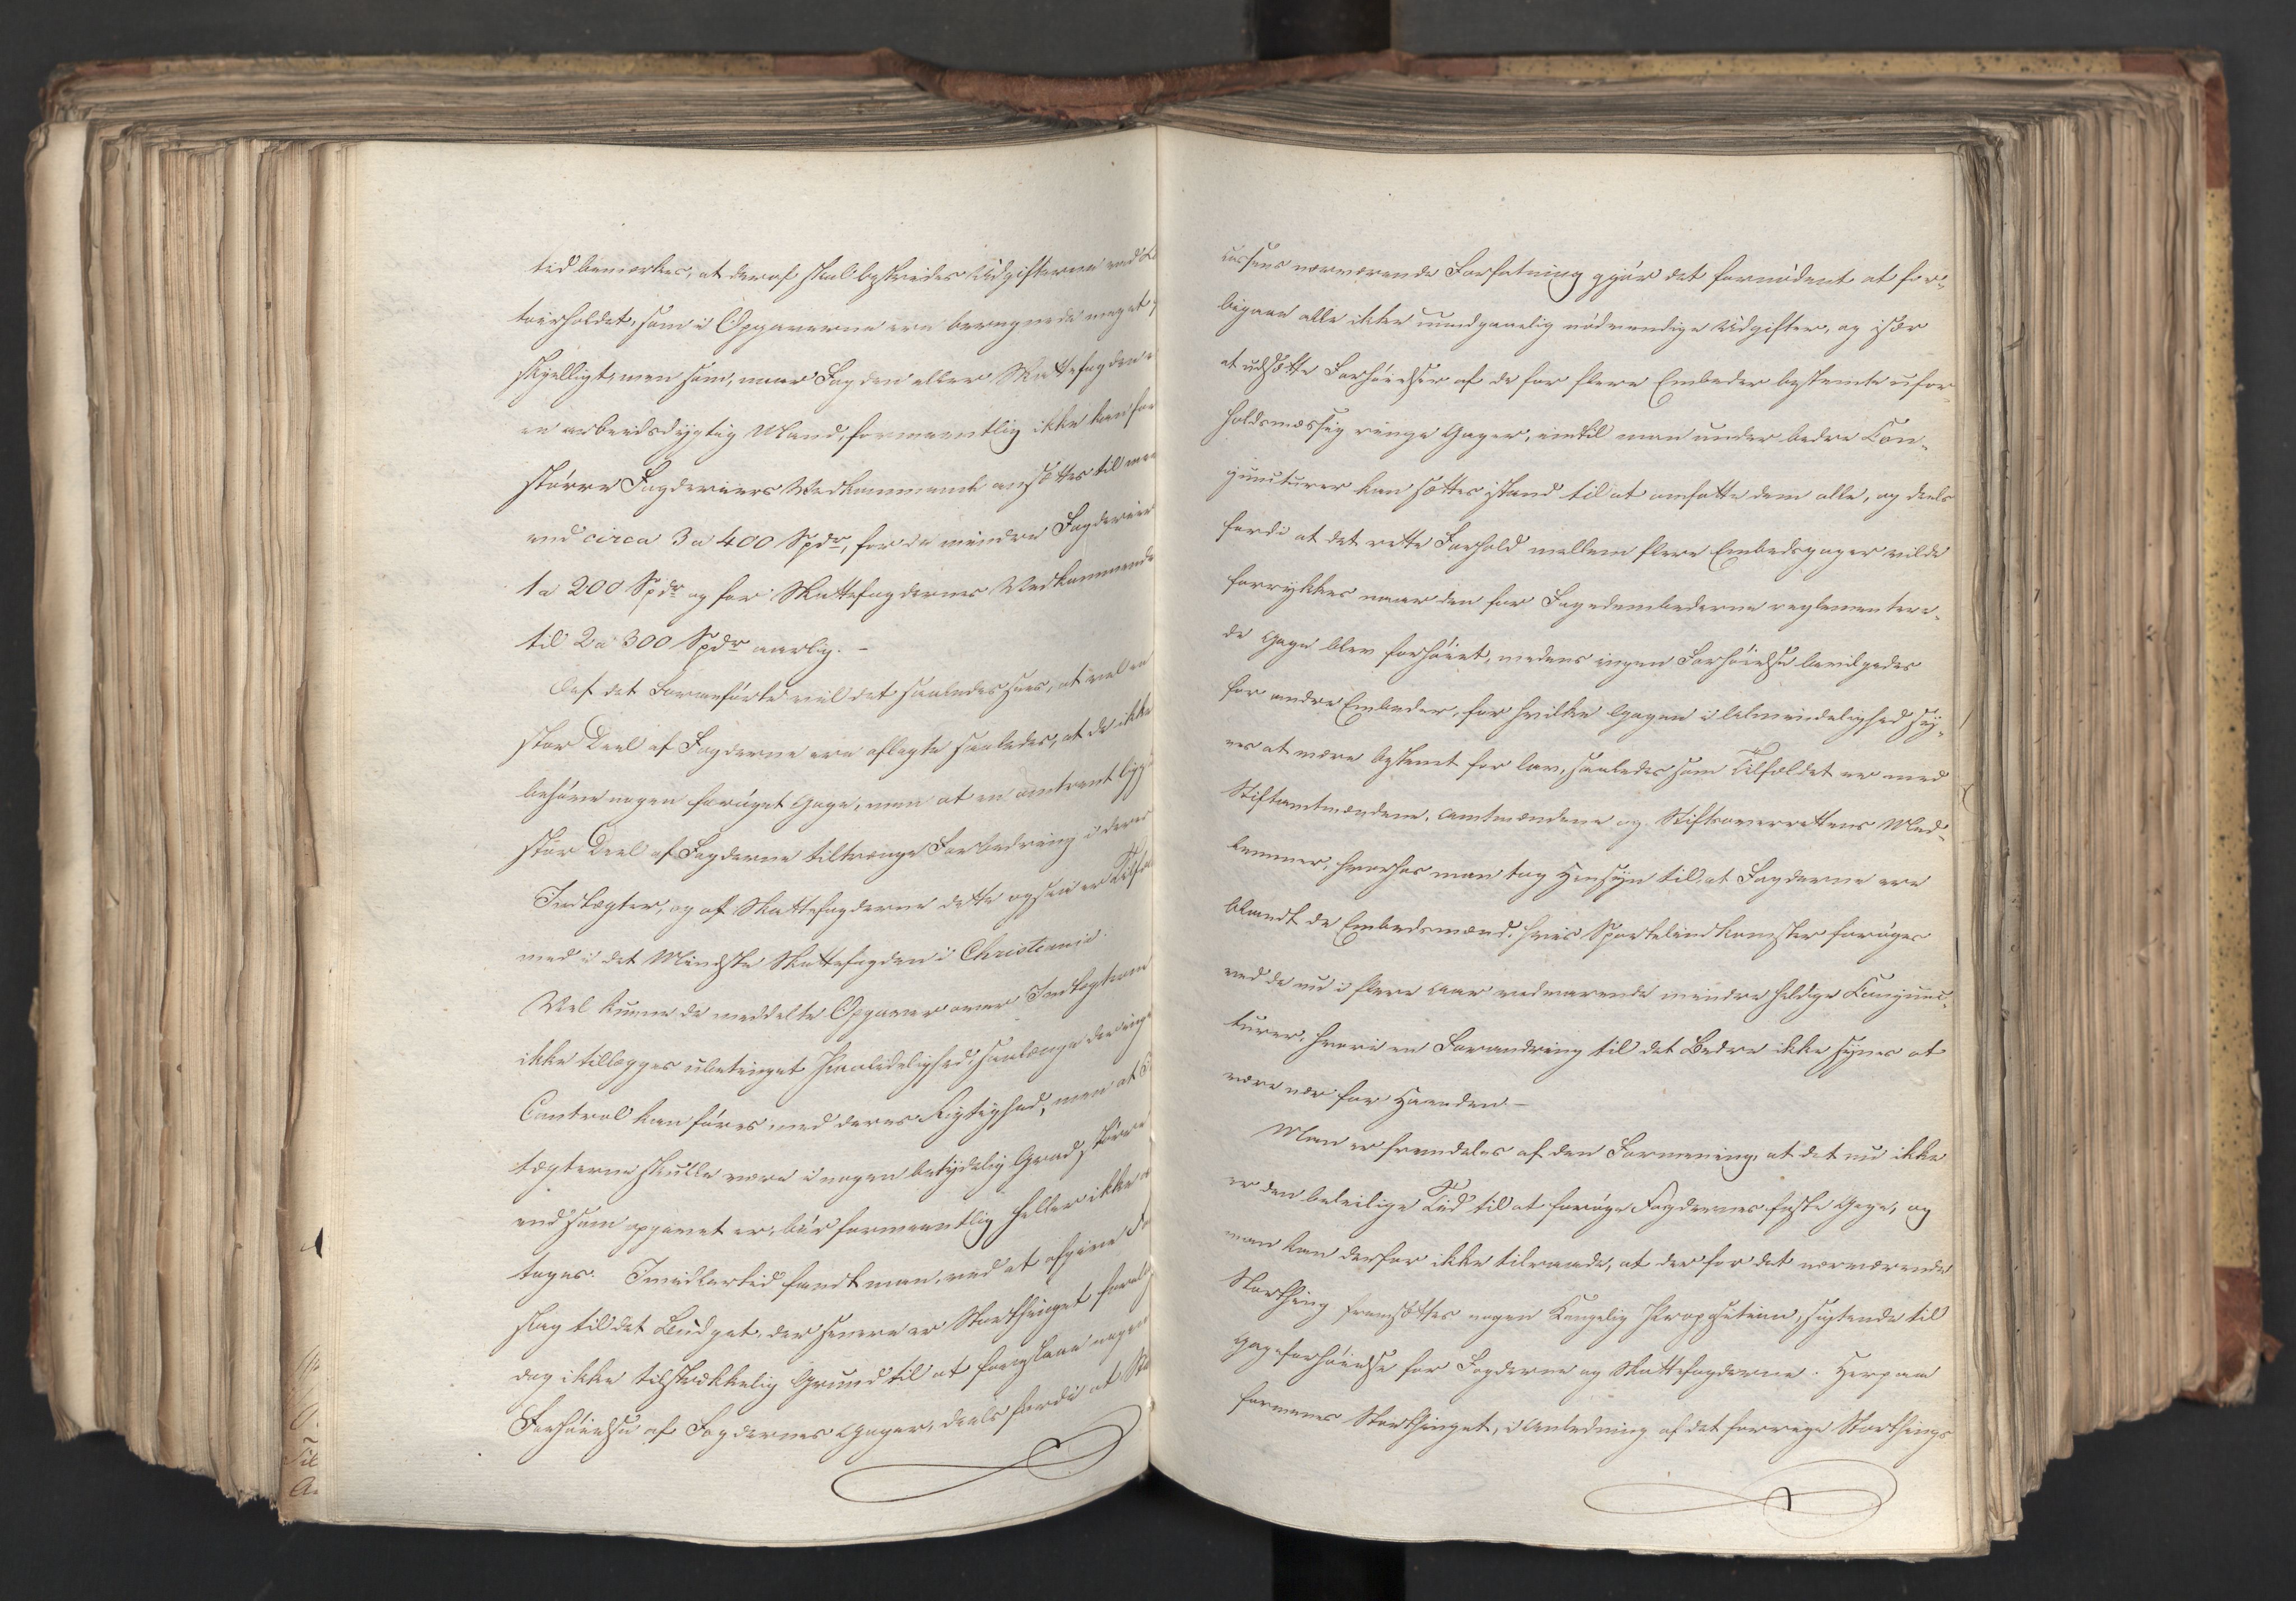 tid bemærkes, at deraf skal bestrides Udgifterne ved
toirholdet, som i Opgaverne ere beregnede meget
skjelligt, men som, naar Fogden eller Skattefogden
en arbeidsdygtig Mand, formeentlig ikke kan for
større Fogderiers Vedkommende ansættes til
end circa 3 a 400 Spdr, for de mindre Fogderier
1 a 200 Spdr og for Skattefogdernes Vedkommende
til 2 a 300 Spdr aarlig. –
Af det Foranførte vil det saaledes sees, at vel en
stor Deel af Fogderne ere aflagte saaledes, at de ikke
behøve nogen forøget Gage, men at en omtrent lige
stor Deel af Fogderne tiltrænge Forbedring i deres
Indtægter, og af Skattefogderne dette ogsaa er
med i det Mindste Skattefogden i Christiania.
Vel kunne de meddelte Opgaver over Indtægterne
ikke tillægges ubetinget Paalidelighed, saalænge der ingen
Control kan føres med deres Rigtighed, men at
tægterne skulle være i nogen betydelig Grad større
end som opgivet er, bør formeentlig heller ikke
tages. Imidlertid fandt man, ved at afgive
slag til det Budget, der senere er Storthinget
dog ikke tilstrækkelig Grund til at foreslaae nogen
Forhøielse af Fogdernes Gager, deels fordi at
cassens nærværende Forfatning gjør det fornødent at for-
bigaae alle ikke uundgaaelig nødvendige Udgifter, og især
at udsætte Forhøielser af de for flere Embeder bestemte ufor-
holdsmæssig ringe Gager, indtil man under bedre Con-
juncturer kan sættes istand til at omfatte dem alle, og deels
fordi at det rette Forhold mellem flere Embedsgager vilde
forrykkes naar den for Fogedembederne reglementere-
de Gage blev forhøiet, medens ingen Forhøielse bevilgedes
for andre Embeder, for hvilke Gagen i Almindelighed sy-
nes at være bestemt for lav, saaledes som Tilfældet er med
Stiftamtmændene, Amtmændene og Stiftsoverrettens Med-
lemmer, hvorhos man tog Hensyn til, at Fogderne ere
blandt de Embedsmænd, hvis Sportelindkomster forøges
ved de nu i flere Aar vedvarende mindre heldige Conjunc-
turer, hvori en Forandring til det Bedre ikke synes at
være nær for Haanden. –
Man er fremdeles af den Formening, at det nu ikke
er den beleilige Tid til at forøge Fogdernes faste Gage, og
man kan derfor ikke tilraade, at der for det nærværende
Storthing fremsættes nogen Kongelig Proposition, sigtende til
Gageforhøielse for Fogderne og Skattefogderne. Herpaa
formenes Storthinget, i Anledning af det forrige Storthings